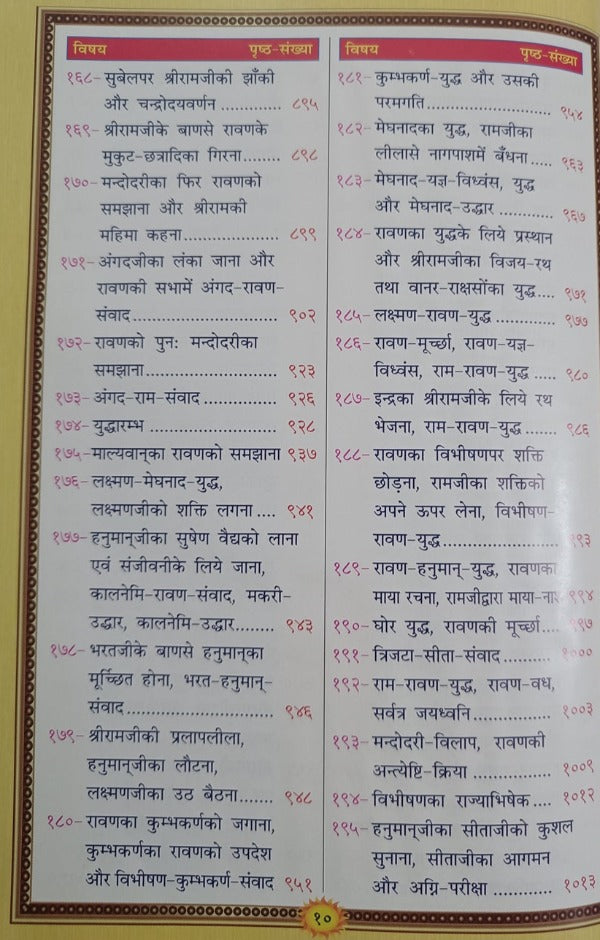 विषय पृष्ठ-संख्या
१६८- सुबेलपर श्रीरामजीकी झाँकी
और चन्द्रोदयवर्णन ............ ८९५
१६९- श्रीरामजीके बाणसे रावणके
मुकुट-छत्रादिका गिरना........ ८९८
१७०- मन्दोदरीका फिर रावणको
समझाना और श्रीरामकी
महिमा कहना................... ८९९
१७१- अंगदजीका लंका जाना और
रावणकी सभामें अंगद-रावण-
संवाद ............................. ९०२
१७२- रावणको पुनः मन्दोदरीका
समझाना.......................... ९२३
१७३- अंगद-राम-संवाद .............. ९२६
१७४- युद्धारम्भ ......................... ९२८
१७५- माल्यवान्‌का रावणको समझाना ९३७
१७६- लक्ष्मण-मेघनाद-युद्ध,
लक्ष्मणजीको शक्ति लगना .... ९४१
१७७- हनुमान्‌जीका सुषेण वैद्यको लाना
एवं संजीवनीके लिये जाना,
कालनेमि-रावण-संवाद, मकरी-
उद्धार, कालनेमि-उद्धार........ ९४३
१७८- भरतजीके बाणसे हनुमान्‌का
मूर्च्छित होना, भरत-हनुमान्-
संवाद ............................. ९४६
१७९- श्रीरामजीकी प्रलापलीला,
हनुमान्‌जीका लौटना,
लक्ष्मणजीका उठ बैठना........ ९४८
१८०- रावणका कुम्भकर्णको जगाना,
कुम्भकर्णका रावणको उपदेश
और विभीषण-कुम्भकर्ण-संवाद ९५१
विषय पृष्ठ-संख्या
१८१- कुम्भकर्ण-युद्ध और उसकी
परमगति......................... ९५४
१८२- मेघनादका युद्ध, रामजीका
लीलासे नागपाशमें बँधना..... ९६३
१८३- मेघनाद-यज्ञ-विध्वंस, युद्ध
और मेघनाद-उद्धार ............ ९६७
१८४- रावणका युद्धके लिये प्रस्थान
और श्रीरामजीका विजय-रथ
तथा वानर-राक्षसोंका युद्ध.... ९७१
१८५- लक्ष्मण-रावण-युद्ध ........... ९७७
१८६- रावण-मूर्च्छा, रावण-यज्ञ-
विध्वंस, राम-रावण-युद्ध ..... ९८०
१८७- इन्द्रका श्रीरामजीके लिये रथ
भेजना, राम-रावण-युद्ध....... ९८६
१८८- रावणका विभीषणपर शक्ति
छोड़ना, रामजीका शक्तिको
अपने ऊपर लेना, विभीषण-
रावण-युद्ध....................... ९९३
१८९- रावण-हनुमान्-युद्ध, रावणका
माया रचना, रामजीद्वारा माया-नाश ९९४
१९०- घोर युद्ध, रावणकी मूर्च्छा.... ९९७
१९१- त्रिजटा-सीता-संवाद........... १०००
१९२- राम-रावण-युद्ध, रावण-वध,
सर्वत्र जयध्वनि ................ १००३
१९३- मन्दोदरी-विलाप, रावणकी
अन्त्येष्टि-क्रिया ................ १००९
१९४- विभीषणका राज्याभिषेक .... १०१२
१९५- हनुमान्‌जीका सीताजीको कुशल
सुनाना, सीताजीका आगमन
और अग्नि-परीक्षा ............ १०१३
१०